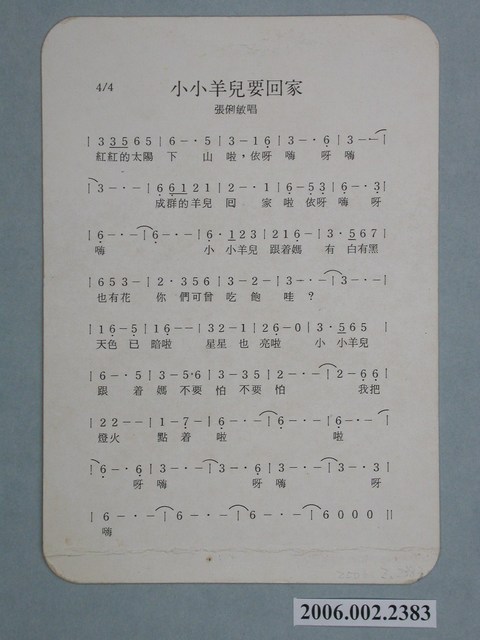 4/4 小小羊兒要回家
張俐敏唱
| 3 3 5 6 5 | 6 - · 5 | 3 - 1 6 | 3 - · 6 | 3 - · - |
紅紅的太陽 下 山 啦，依呀 嗨 呀 嗨
| 3 - · - | 6 6 1 2 1 | 2 - · 1 | 6 - 5 3 | 6 - · 3 |
成群的羊兒 囘 家 啦 依呀 嗨 呀
| 6 - · - | 6 - · - | 6 · 1 2 3 | 2 1 6 - | 3 · 5 6 7 |
嗨 小 小羊兒 跟着媽 有 白有黑
| 6 5 3 - | 2 · 3 5 6 | 3 - 2 - | 3 - · - | 3 - · - |
也有花 你 們可曾 吃 飽 哇？
| 1 6 - 5 | 1 6 - - | 3 2 - 1 | 2 6 - 0 | 3 · 5 6 5 |
天色 已 暗啦 星星 也 亮啦 小 小羊兒
| 6 - · 5 | 3 - 5 · 6 | 3 - 3 5 | 2 - · - | 2 - 6 6 |
跟 着 媽 不要 怕 不要 怕 我把
| 2 2 - - | 1 - 7 - | 6 - · - | 6 - · - | 6 - · - |
燈火 點 着 啦 啦
| 6 - · 6 | 3 - · - | 3 - · 6 | 3 - · - | 3 - · 3 |
呀 嗨 呀 嗨 呀
| 6 - · - | 6 - · - | 6 - · - | 6 0 0 0 ||
嗨
2006.002.2383